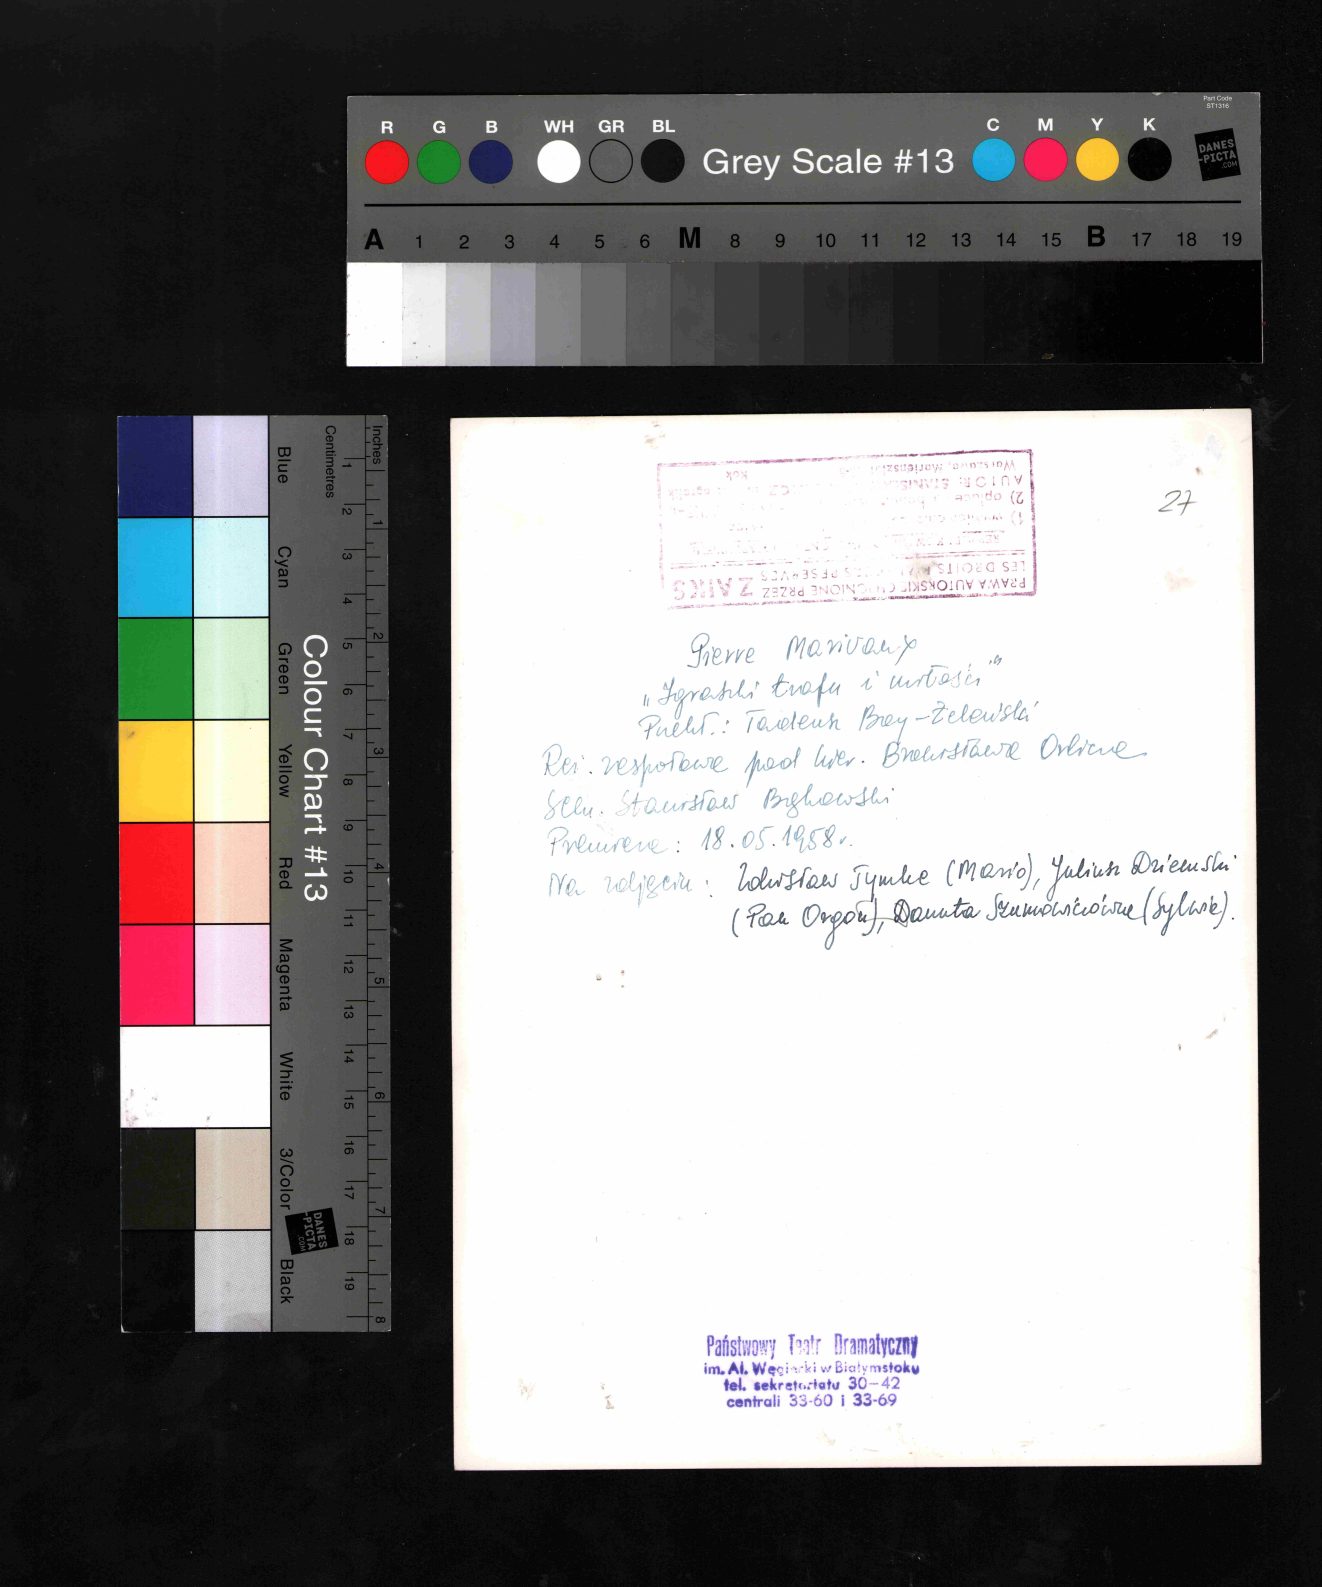 Part Code
ST1316
R G B WH GR BL Grey Scale #13 C M Y K
DANES
-PICTA
.COM
A 1 2 3 4 5 6 M 8 9 10 11 12 13 14 15 B 17 18 19
Colour Chart #13
Blue Cyan Green Yellow Red Magenta White 3/Color Black
Centimetres
1 2 3 4 5 6 7 8 9 10 11 12 13 14 15 16 17 18 19
Inches
1 2 3 4 5 6 7 8
DANES
-PICTA
.COM
27
PRAWA AUTORSKIE CHRONIONE PRZEZ ZAIKS
LES DROITS RESERVES
1)
2)
AUTOR: STANISŁAW
Warszawa, Mariensztat
Rok
Pierre Marivaux
„Igraszki trafu i miłości"
Przekł.: Tadeusz Boy-Żeleński
Reż. zespołowa pod kier. Bronisława Orlicza
Scen. Stanisław Bąkowski
Premiera: 18.05.1958r.
Na zdjęciu: Zdzisław Tymke (Mario), Juliusz Dzieński
(Pan Orgon), Danuta Szumowiczówna (Sylwia).
Państwowy Teatr Dramatyczny
im. Al. Węgierki w Białymstoku
tel. sekretariatu 30-42
centrali 33-60 i 33-69